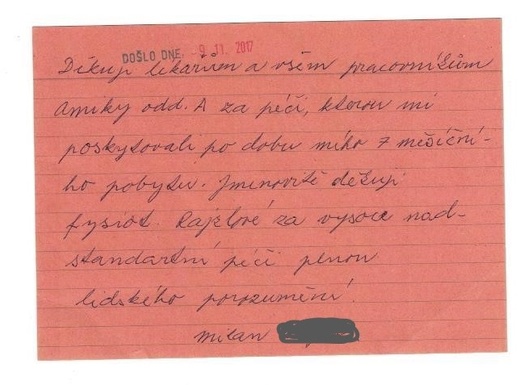 DOŠLO DNE - 9 11. 2017
Děkuji lékařům a všem pracovníkům
Amiky odd. A za péči, kterou mi
poskytovali po dobu mého 7 měsíční-
ho pobytu. Jmenovitě děkuji
fysiot. Rajzlové za vysoce nad-
standartní péči plnou
lidského porozumění.
Milan